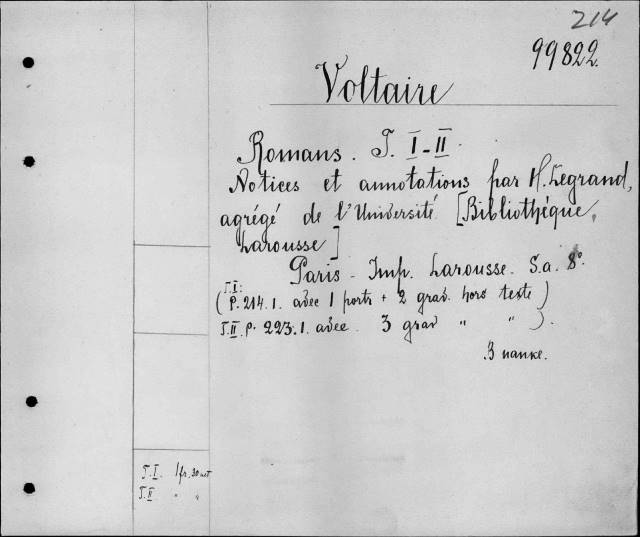 214
99822.
Voltaire
Romans. T. I-II.
Notices et annotations par H. Legrand,
agrégé de l'Université [Bibliothèque
Larousse]
Paris - Imp. Larousse. S.a. 8°.
T.I:
(P. 214.1. avec 1 portr + 2 grav. hors texte)
T.II. p. 223.1. avec. 3 grav " " ).
T.I. 1 fr. 30 net
T.II " "